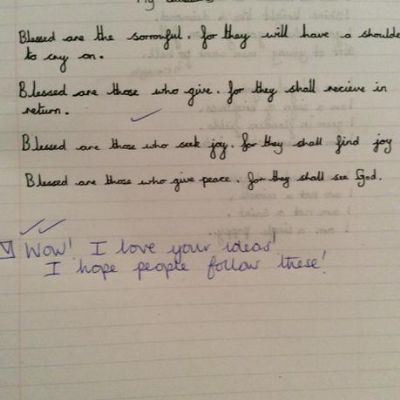 My
Blessed are the sorrowful. for they will have a shoulde
to cry on.
Blessed are those who give. for they shall recieve in
return.
Blessed are those who seek joy. for they shall find joy
Blessed are those who give peace. for they shall see God.
Wow! I love your ideas!
I hope people follow these!